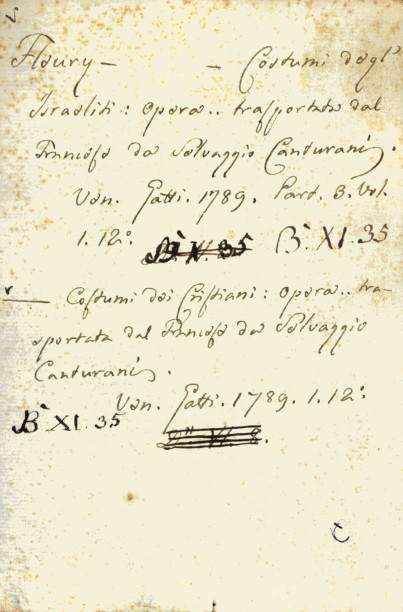 Fleury — — Costumi degl'
Israeliti : opera .. trasportata dal
Francese da Selvaggio Canturani.
Ven. Gatti. 1789. Part. 3. Vol.
1. 12º. B` XI. 35
— Costumi dei Cristiani : opera .. tra-
sportata dal Francese da Selvaggio
Canturani.
Ven. Gatti. 1789. 1. 12º.
B` XI. 35